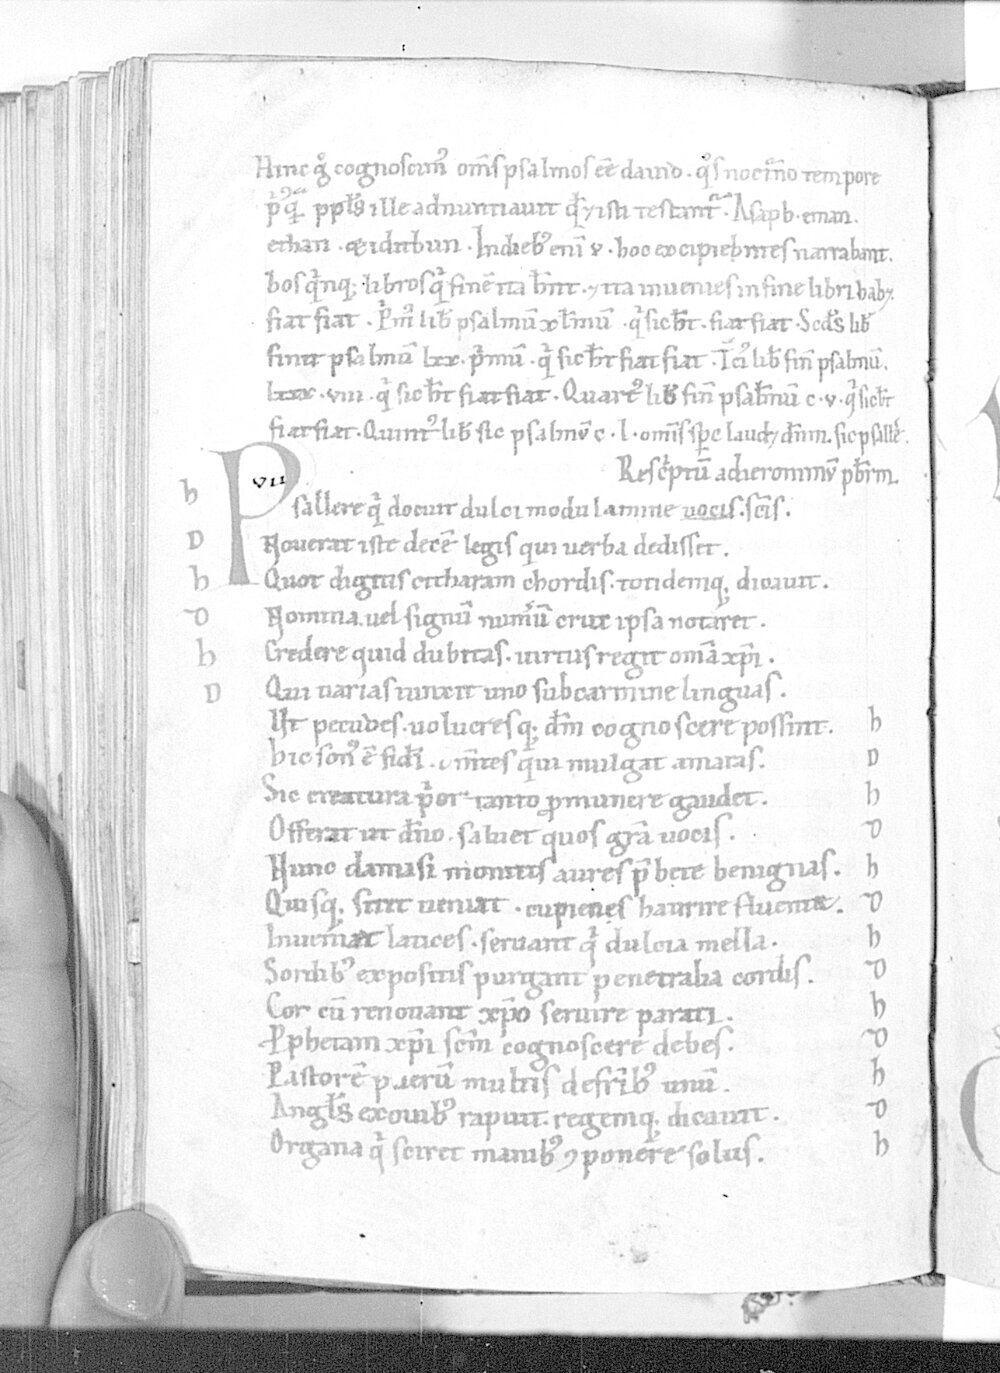 hinc g̊ cognoscim᷒ om̅s psalmos ee̅ dauid · q̊s nocturno tempore
p̊q̨ ppl̅s ille adnuntiauit q̅ ⁊ isti testant᷒ · Asaph · eman ·
ethan · & idithun · In dieb᷒ eni̅ v · hoc excipientes narrabant ·
hos q̅nq; libros q̊ fine̅ ita hn̅t · ⁊ ita inuenies in fine libri
fiat fiat · P̊m᷒ lib̅ psalmu̅ xlmu̅ · q̊ sic ht̅ · fiat fiat · Scd̅s lib̅
finit psalmu̅ lxx · p̊mu̅ · q̊ sic ht̅ fiat fiat · Tci᷒ lib̅ fin̅ psalmu̅ ·
lxxx · viii · q̊ sic ht̅ fiat fiat · Quart᷒ lib̅ fin̅ psalmu̅ c · v · q̊ sic ht̅
fiat fiat · Quint᷒ lib̅ sic psalmu̅ c · l · omi̅s sp̅c laud& dn̅m · sic psalle̅ ·
Resc̊ptu̅ ad ieronimu̅ pb̅rm
vii
h Psallere q̊ docuit dulci modulamine uocis · sc̅is ·
D Nouerat iste dece̅ legis qui uerba dedisset ·
h Quot digitis citharam chordis · totidemq; dicauit ·
D Nomina uel signu̅ numu̅ crux ipsa notaret ·
h Credere quid dubitas · uirtus regit oma̅ xp̅i ·
D Qui uarias iunxit uno sub carmine linguas ·
Ut pecudes · uolucresq; dm̅ cognoscere possint · h
hic son᷒ e̅ fidei · om̅tes q̊ mulgat amaras · D
Sic creatura p̊or tanto p̲ munere gaudet · h
Offerat ut dn̅o · saluet quos gra̅ uocis · D
Nunc damasi monitis aures p̅bete benignas · h
Quisq; sitit ueniat · cupiens haurire fluenta · D
Inueniat latices · seruant q̊ dulcia mella · h
Sordib᷒ expositis purgant penetralia cordis · D
Cor cu̅ renouant xp̅o seruire parati · h
Pphetam xp̅i scm̅ cognoscere debes · D
Pastore̅ pueru̅ multis de frib᷒ unu̅ · h
Angl̅s ex ouib᷒ rapuit · regemq; dicauit · D
Organa q̊ sciret manib᷒ ꝯponere solus · h